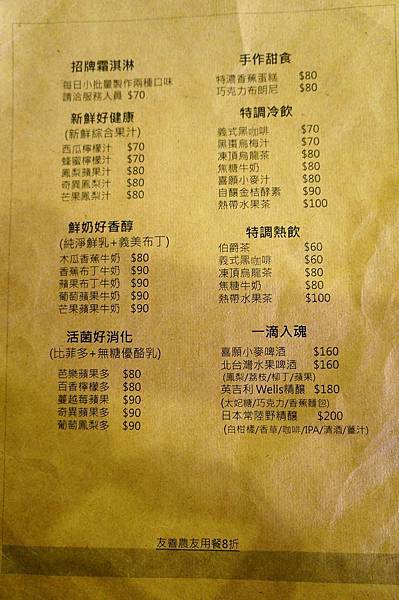 招牌霜淇淋
每日小批量製作兩種口味
請洽服務人員 $70
新鮮好健康
(新鮮綜合果汁)
西瓜檸檬汁 $70
蜂蜜檸檬汁 $70
鳳梨蘋果汁 $80
奇異鳳梨汁 $80
芒果鳳梨汁 $80
鮮奶好香醇
(純淨鮮乳+義美布丁)
木瓜香蕉牛奶 $80
香蕉布丁牛奶 $90
蘋果布丁牛奶 $90
葡萄蘋果牛奶 $90
芒果蘋果牛奶 $90
活菌好消化
(比菲多+無糖優酪乳)
芭樂蘋果多 $80
百香檸檬多 $80
蔓越莓蘋果 $90
奇異蘋果多 $90
葡萄鳳梨多 $90
手作甜食
特濃香蕉蛋糕 $80
巧克力布朗尼 $80
特調冷飲
義式黑咖啡 $70
黑棗烏梅汁 $70
凍頂烏龍茶 $80
焦糖牛奶 $80
喜願小麥汁 $80
自釀金桔酵素 $90
熱帶水果茶 $100
特調熱飲
伯爵茶 $60
義式黑咖啡 $60
凍頂烏龍茶 $80
焦糖牛奶 $80
熱帶水果茶 $100
一滴入魂
喜願小麥啤酒 $160
北台灣水果啤酒 $160
(鳳梨/荔枝/柳丁/蘋果)
英吉利 Wells精釀 $180
(太妃糖/巧克力/香蕉麵包)
日本常陸野精釀 $200
(白柑橘/香草/咖啡/IPA/清酒/薑汁)
友善農友用餐8折